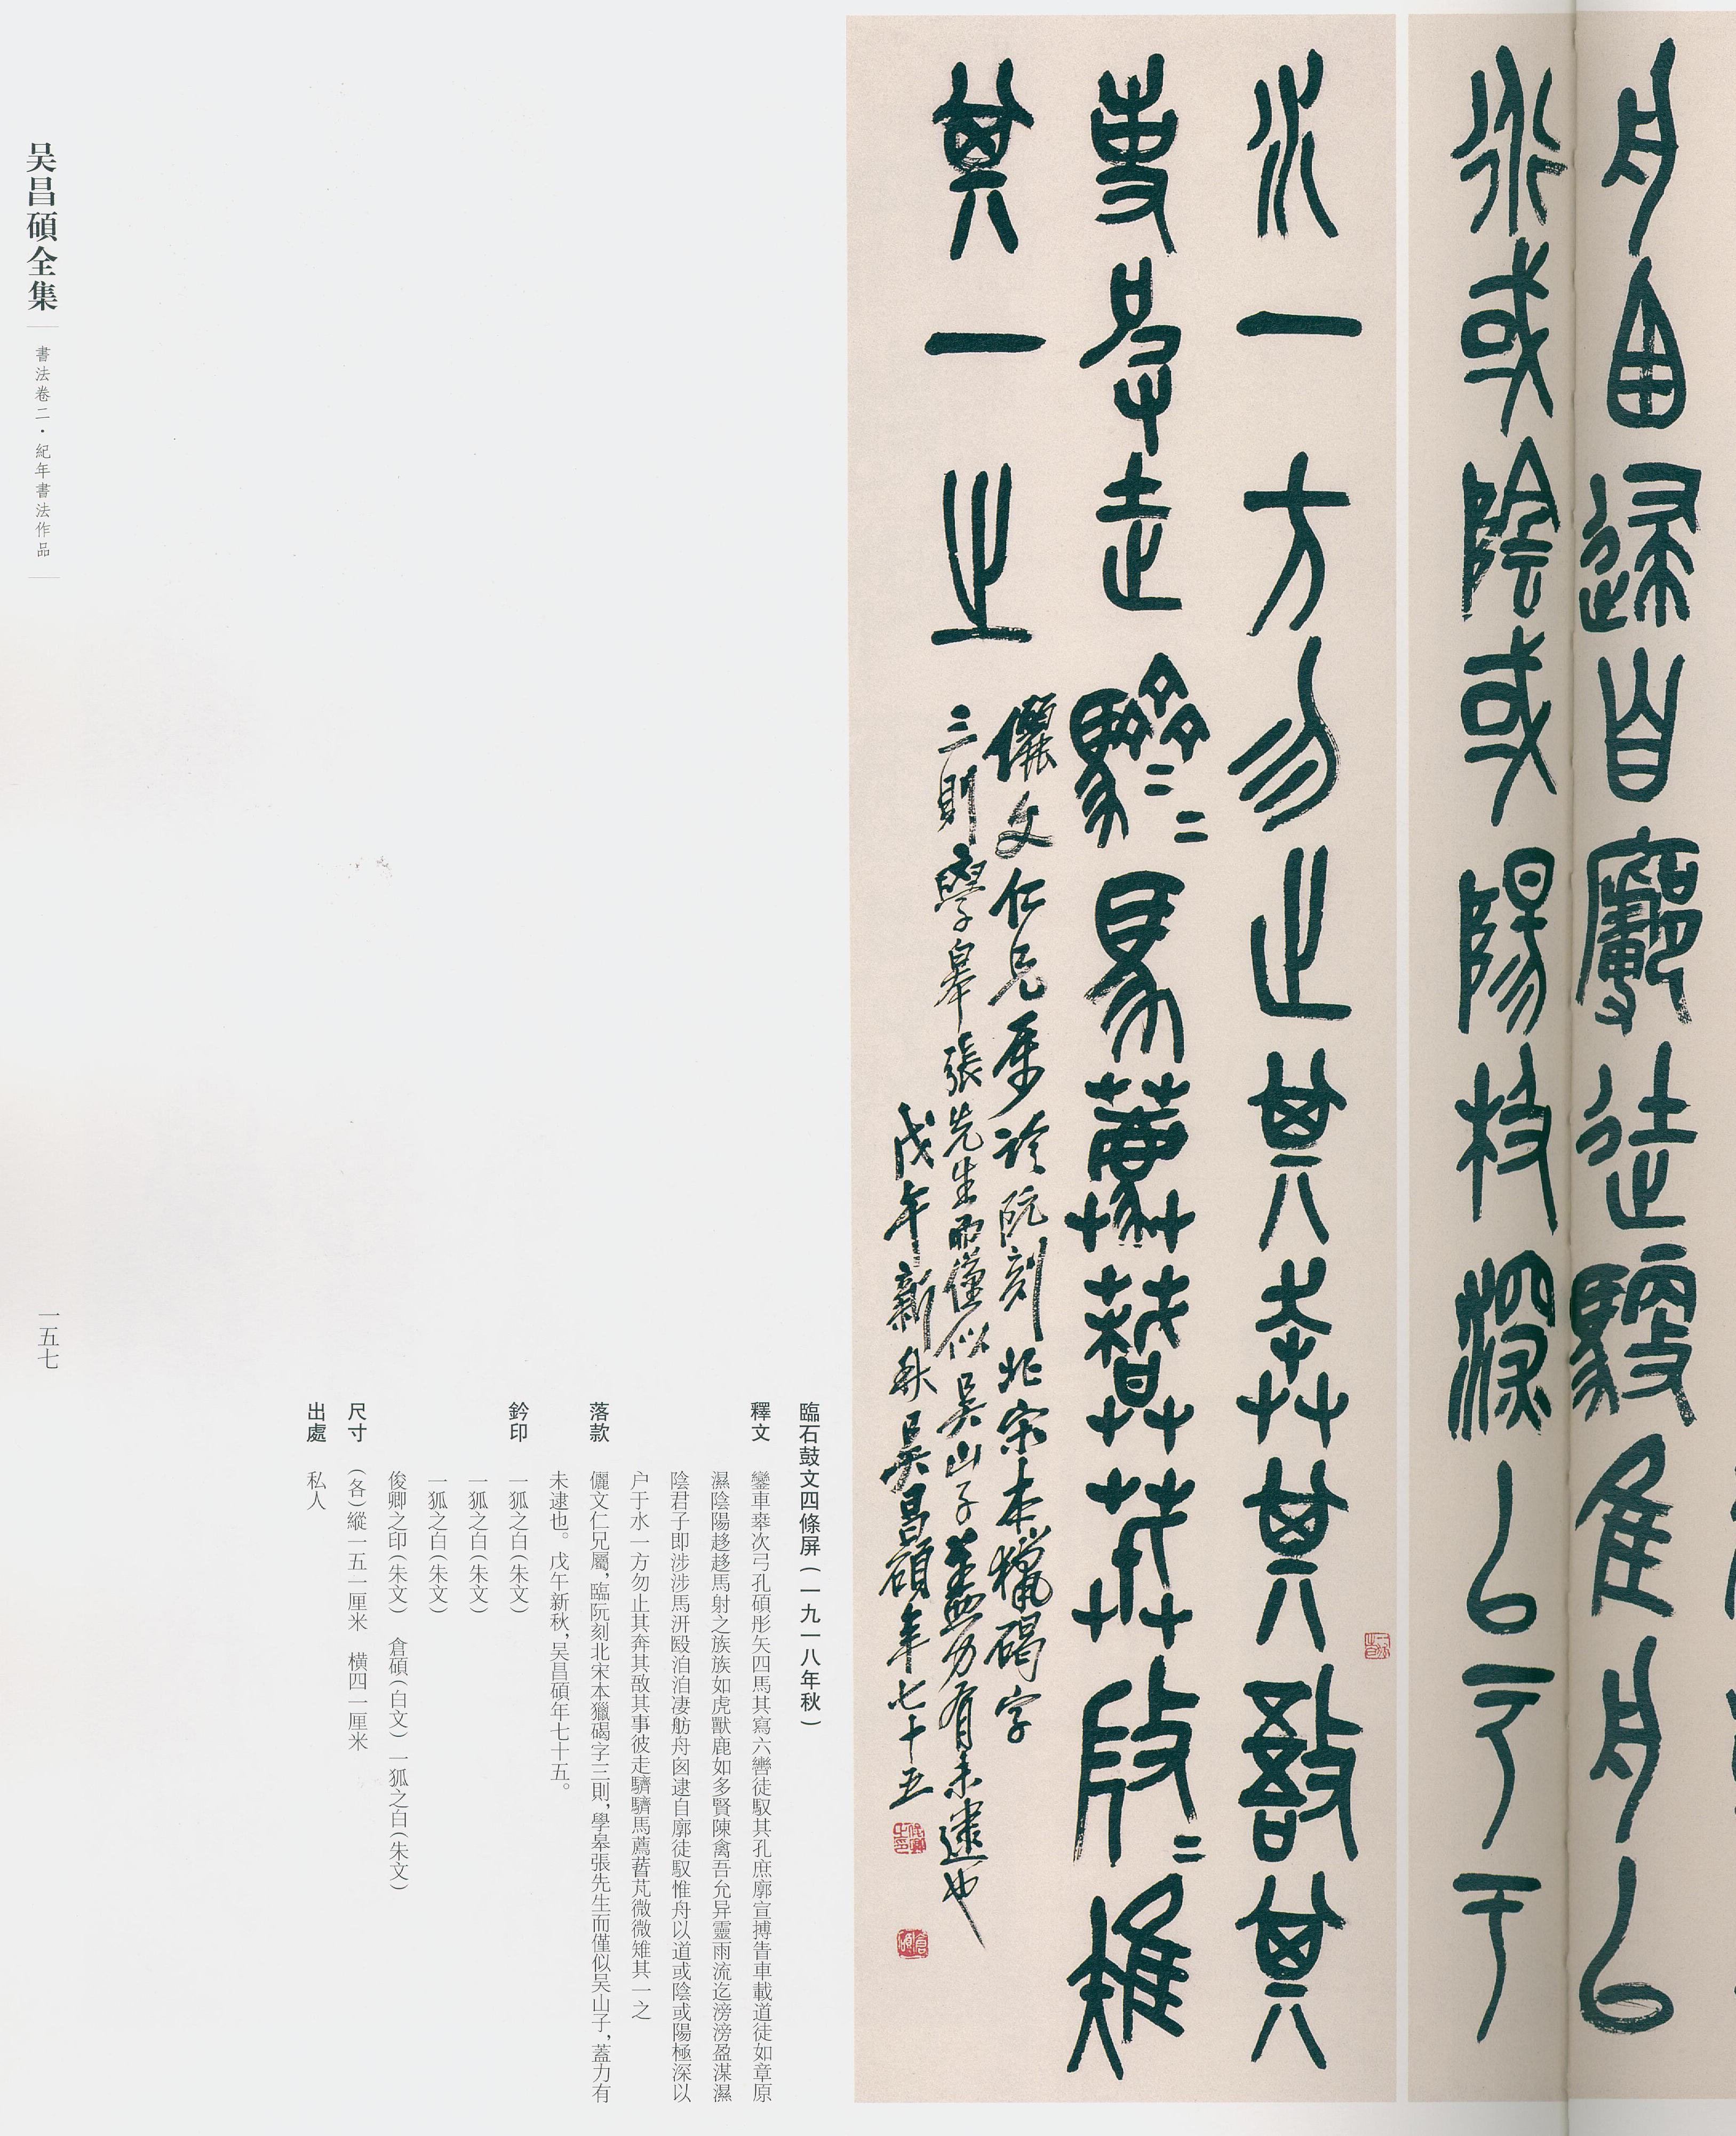 舟囱逮自廓徒馭惟舟以
道或陰或陽極深以户于
水一方勿止其奔其敔其
事彼走馬薦蓍芃微微雉
其一之
儷文仁兄屬臨阮刻北宋本獵碣字
三則學皋張先生而僅似吴山子蓋力有未逮也
戊午新秋吴昌碩年七十五
臨石鼓文四條屏（一九一八年秋）
釋文 鑾車𠦪次弓孔碩彤矢四馬其寫六轡徒馭其孔庶廓宣搏眚車載道徒如章原
濕陰陽趍趍馬射之族族如虎獸鹿如多賢陳禽吾允异靈雨流迄滂滂盈渫濕
陰君子即涉涉馬汧殹洎洎凄舫舟囱逮自廓徒馭惟舟以道或陰或陽極深以
户于水一方勿止其奔其敔其事彼走馬薦蓍芃微微雉其一之
落款 儷文仁兄屬，臨阮刻北宋本獵碣字三則，學皋張先生而僅似吴山子，蓋力有
未逮也。戊午新秋，吴昌碩年七十五。
鈐印 一狐之白（朱文）
一狐之白（朱文）
一狐之白（朱文）
俊卿之印（朱文） 倉碩（白文） 一狐之白（朱文）
尺寸 （各）縱一五一厘米 橫四一厘米
出處 私人
吴昌碩全集
書法卷二·紀年書法作品
一五七